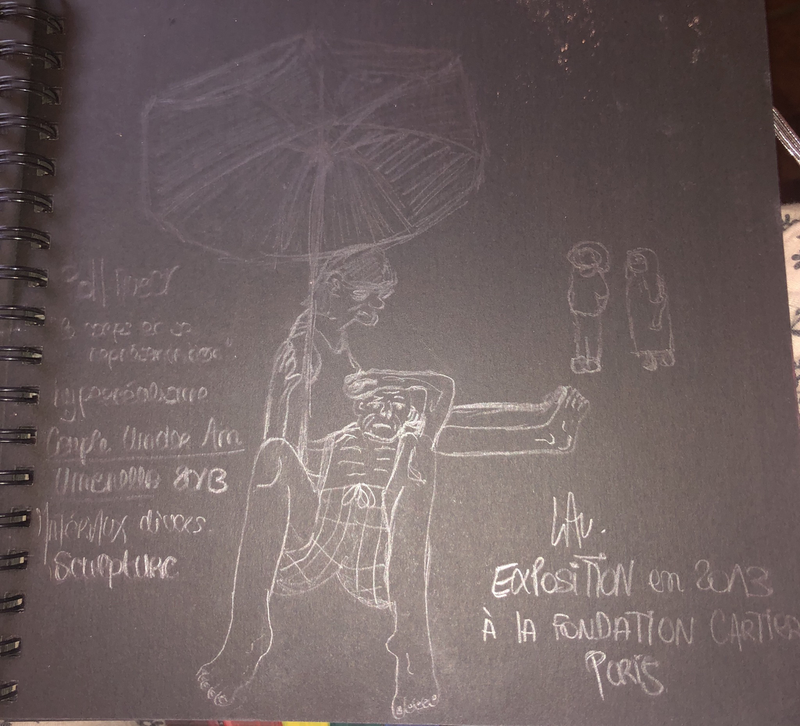 le corps et sa
représentation".
hyperréalisme
Couple Under An
Umbrella 2013
Matériaux divers.
Sculpture
LAu.
EXPOSITION en 2013
À lA FONDATION CARTIER
PARIS